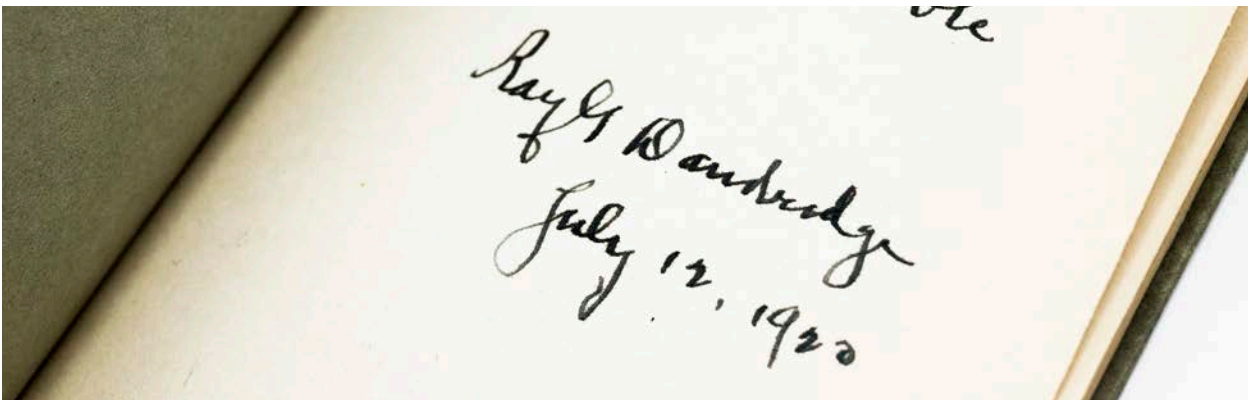 Ray G Dandridge
July 12, 1920